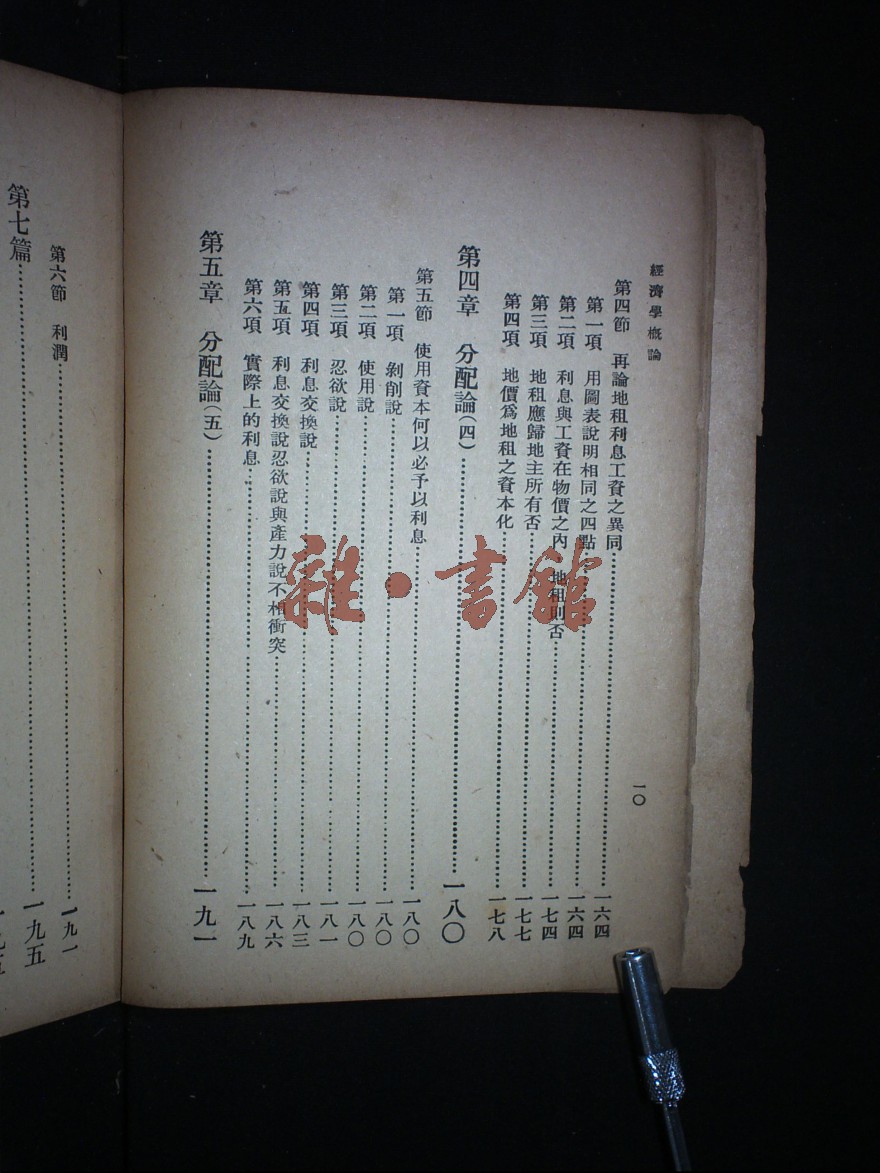 經濟學概論
第四節 再論地租利息工資之異同……一六四
第一項 用圖表說明相同之四點……一六四
第二項 利息與工資在物價之內 地租則否……一七四
第三項 地租應歸地主所有否……一七七
第四項 地價爲地租之資本化……一七八
第四章 分配論(四)……一八〇
第五節 使用資本何以必予以利息……一八〇
第一項 剝削說……一八〇
第二項 使用說……一八〇
第三項 忍欲說……一八一
第四項 利息交換說……一八三
第五項 利息交換說忍欲說與產力說不相衝突……一八六
第六項 實際上的利息……一八九
第五章 分配論(五)……一九一
一〇
第六節 利潤……一九一
第七篇……一九五
雜·書館